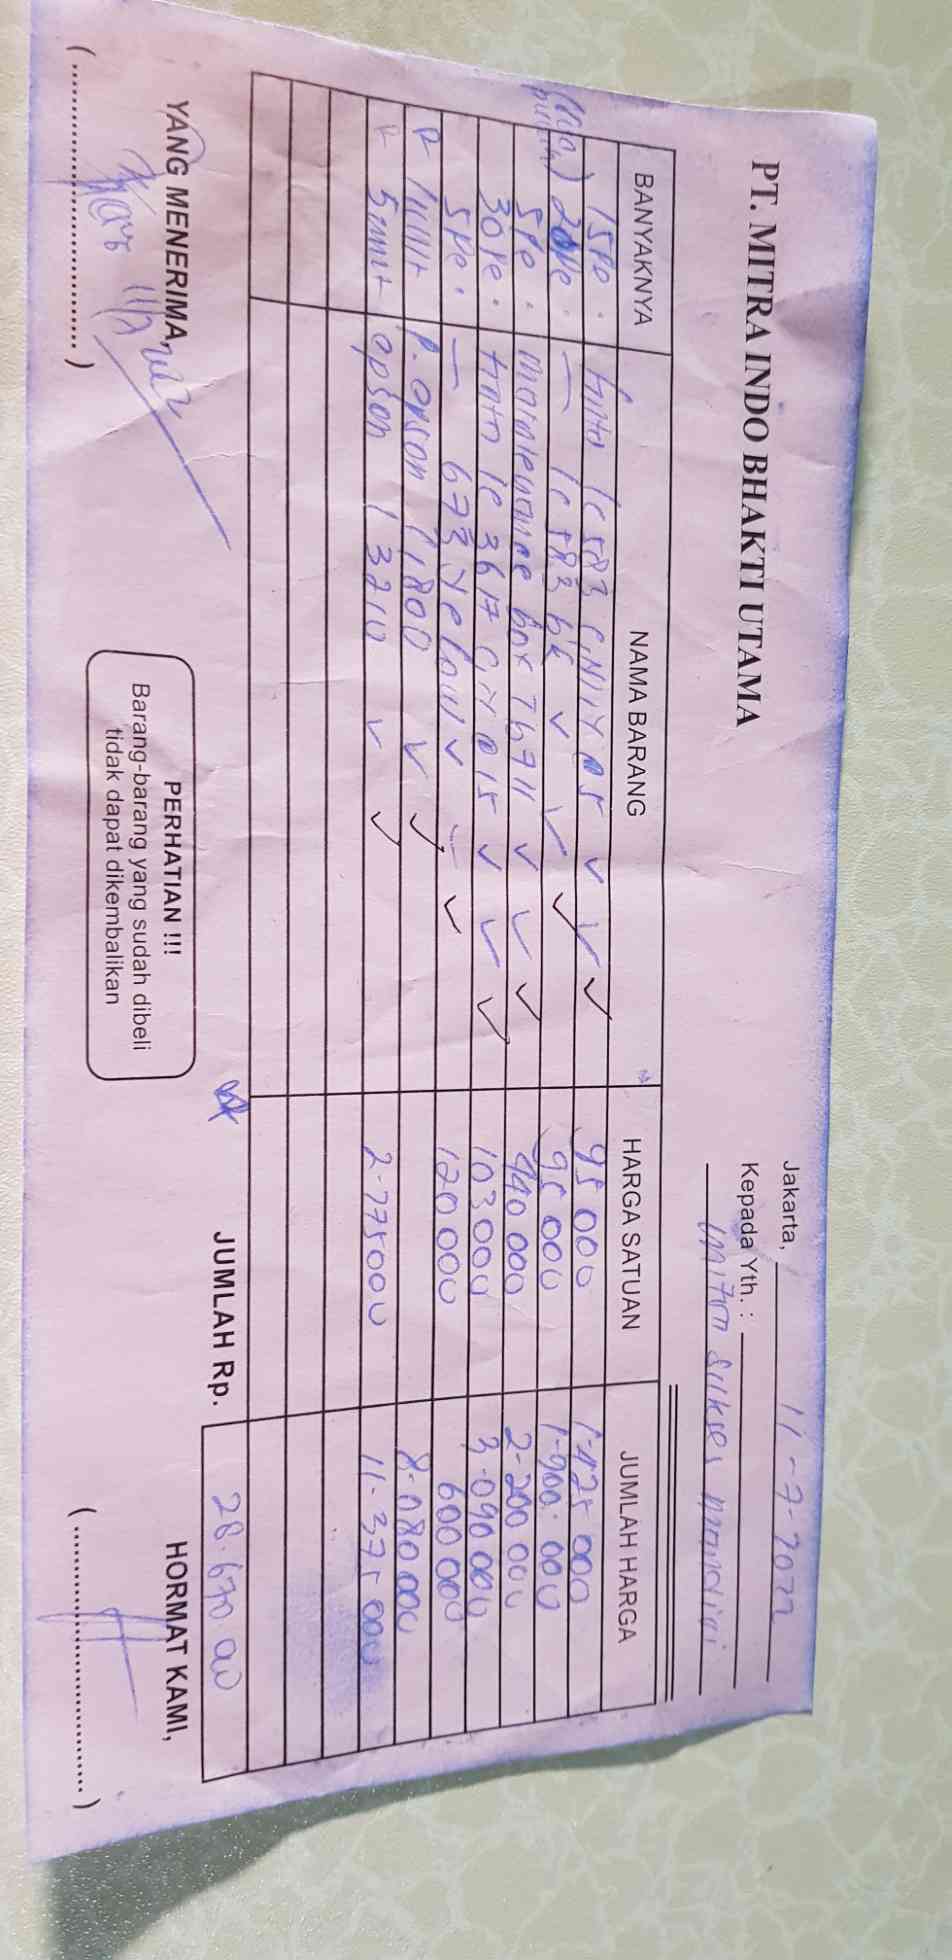 PT. MITRA INDO BHAKTI UTAMA
Jakarta, 11-7-2022
Kepada Yth. :
mitra sukses mandiri
BANYAKNYA NAMA BARANG HARGA SATUAN JUMLAH HARGA
15 pc. tinta lc 583 95 000 1.425 000
20 pc. — lc 583 bk 95 000 1.900.000
5 pc. maintenance box T6711 440 000 2.200 000
30 pc. tinta lc 3617 103000 3.090 000
5 pc. — 673 yelow 120 000 600 000
P. epson L1800 8.080 000
5 unit epson L3210 2.275000 11.375 000
JUMLAH Rp. 28.670 00
YANG MENERIMA,
PERHATIAN !!!
Barang-barang yang sudah dibeli
tidak dapat dikembalikan
HORMAT KAMI,